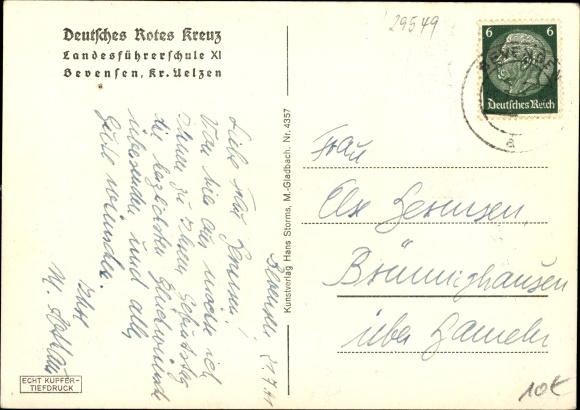 Deutsches Rotes Kreuz
Landesführerschule XI
Bevensen, Kr. Uelzen
29549
6 6
Deutsches Reich
BEVENSEN
Bevensen 21.7.41
Liebe Frau
Von hier aus möchte ich
Ihnen zu Ihrem Geburtstag
die herzlichsten Glückwünsche
übersenden und alles
Gute wünschen.
Ihre
M.
Kunstverlag Hans Storms, M.-Gladbach. Nr. 4357
Frau
Else
Brünnighausen
über Hameln
ECHT KUPFER-
TIEFDRUCK
10€